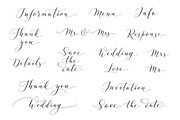 Information Menu Info
Thank you
Mr & Mrs Response
Details
Save the date
Wedding Mr
Love Mrs
Thank you
Invitation
Wedding
Save the date